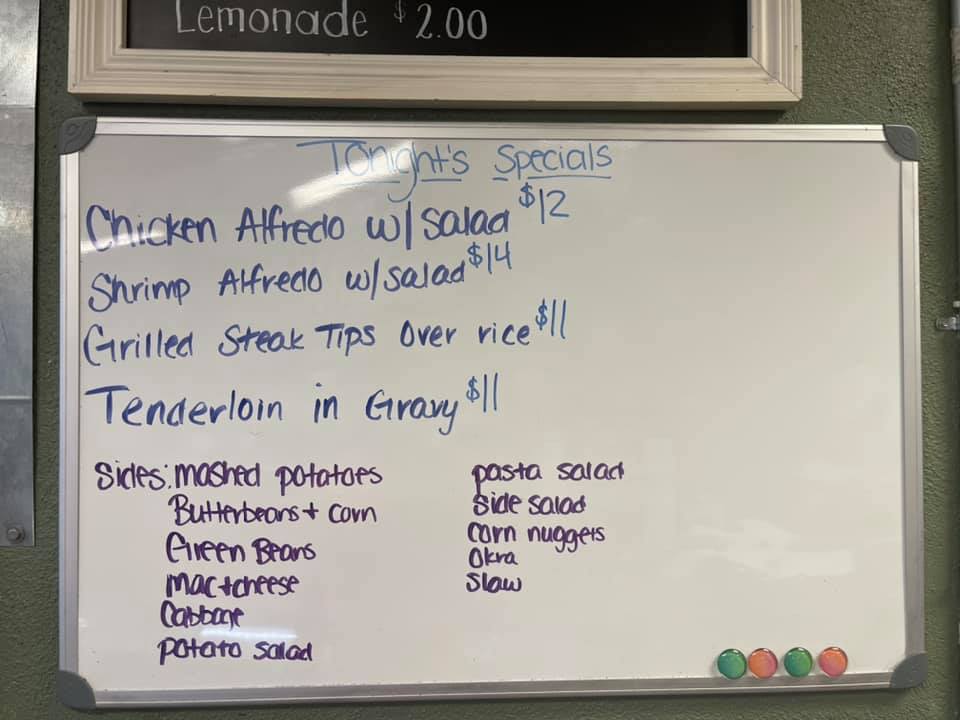 Lemonade $2.00
Tonight's Specials
Chicken Alfredo w/salad $12
Shrimp Alfredo w/salad $14
Grilled Steak Tips Over rice $11
Tenderloin in Gravy $11
Sides: mashed potatoes
Butterbeans + corn
Green Beans
mac+cheese
Cabbage
potato salad
pasta salad
Side salad
corn nuggets
Okra
Slaw